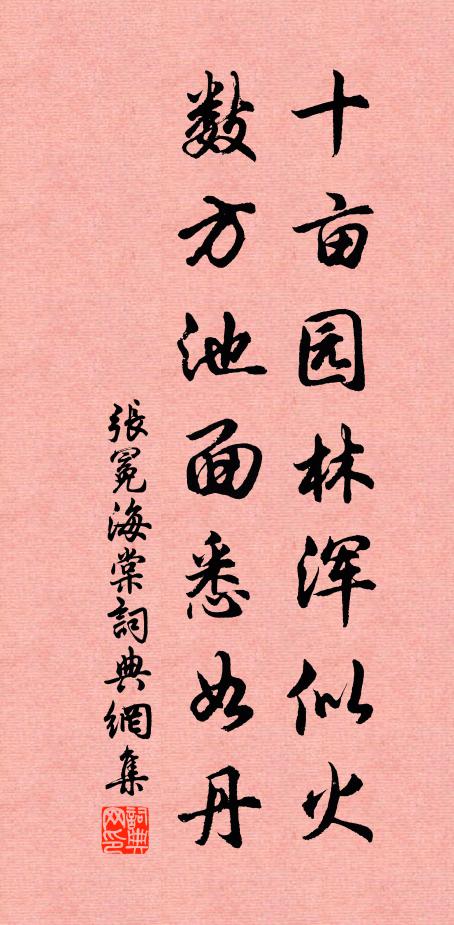 十亩园林浑似火
数方池面悉如丹
張冕海棠詞典網集
詞典
网印